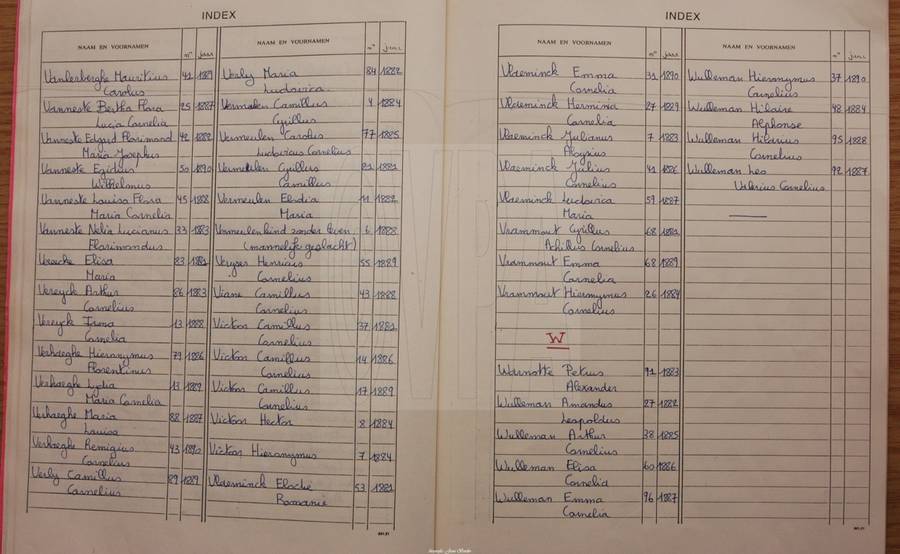 INDEX
NAAM EN VOORNAMEN n° jaar
Vanderberghe Mauritius 41 1889
Carolus
Vanneste Bertha Flora 25 1887
Lucia Cornelia
Vanneste Edgard Florimond 42 1882
Maria Josephus
Vanneste Egidius 50 1890
Wilhelmus
Vanneste Louisa Flora 45 1888
Maria Cornelia
Vanneste Nelia Lucianus 33 1883
Florimondus
Elisa 83 1882
Maria
Vereyck Arthur 86 1883
Cornelius
Vereyck Irma 13 1888
Cornelia
Verhaeghe Hieronymus 79 1886
Florentinus
Verhaeghe Lydia 13 1889
Maria Cornelia
Verhaeghe Maria 88 1887
Louisa
Verhaeghe Remigius 43 1890
Cornelius
Verly Camillus 89 1889
Cornelius
NAAM EN VOORNAMEN n° jaar
Verly Maria 84 1882
Ludovica
Vermeulen Camillus 4 1884
Cyrillus
Vermeulen Carolus 77 1885
Ludovicus Cornelius
Vermeulen Cyrillus 21 1881
Camillus
Vermeulen Elodia 11 1882
Maria
Vermeulen kind zonder leven 6 1888
(mannelijk geslacht)
Henricus 55 1889
Cornelius
Viane Camillus 43 1888
Cornelius
Victor Camillus 37 1881
Cornelius
Victor Camillus 14 1886
Cornelius
Victor Camillus 17 1889
Cornelius
Victor Hector 8 1884
Victor Hieronymus 7 1884
Vlaeminck Elodie 53 1881
Romanie
INDEX
NAAM EN VOORNAMEN n° jaar
Vlaeminck Emma 31 1890
Cornelia
Vlaeminck Hermina 27 1889
Cornelia
Vlaeminck Julianus 7 1883
Aloysius
Vlaeminck Julius 41 1886
Cornelius
Vlaeminck Ludovica 59 1887
Maria
Vrammout Cyrillus 68 1882
Achillus Cornelius
Vrammout Emma 68 1889
Cornelia
Vrammout Hieronymus 26 1884
Cornelius
W
Warnotte Petrus 91 1883
Alexander
Wulleman Amandus 27 1882
Leopoldus
Wulleman Arthur 38 1885
Cornelius
Wulleman Elisa 60 1886
Cornelia
Wulleman Emma 96 1887
Cornelia
NAAM EN VOORNAMEN n° jaar
Wulleman Hieronymus 37 1890
Cornelius
Wulleman Hilaire 48 1884
Alphonse
Wulleman Hilarius 95 1888
Cornelius
Wulleman Leo 92 1887
Valerius Cornelius